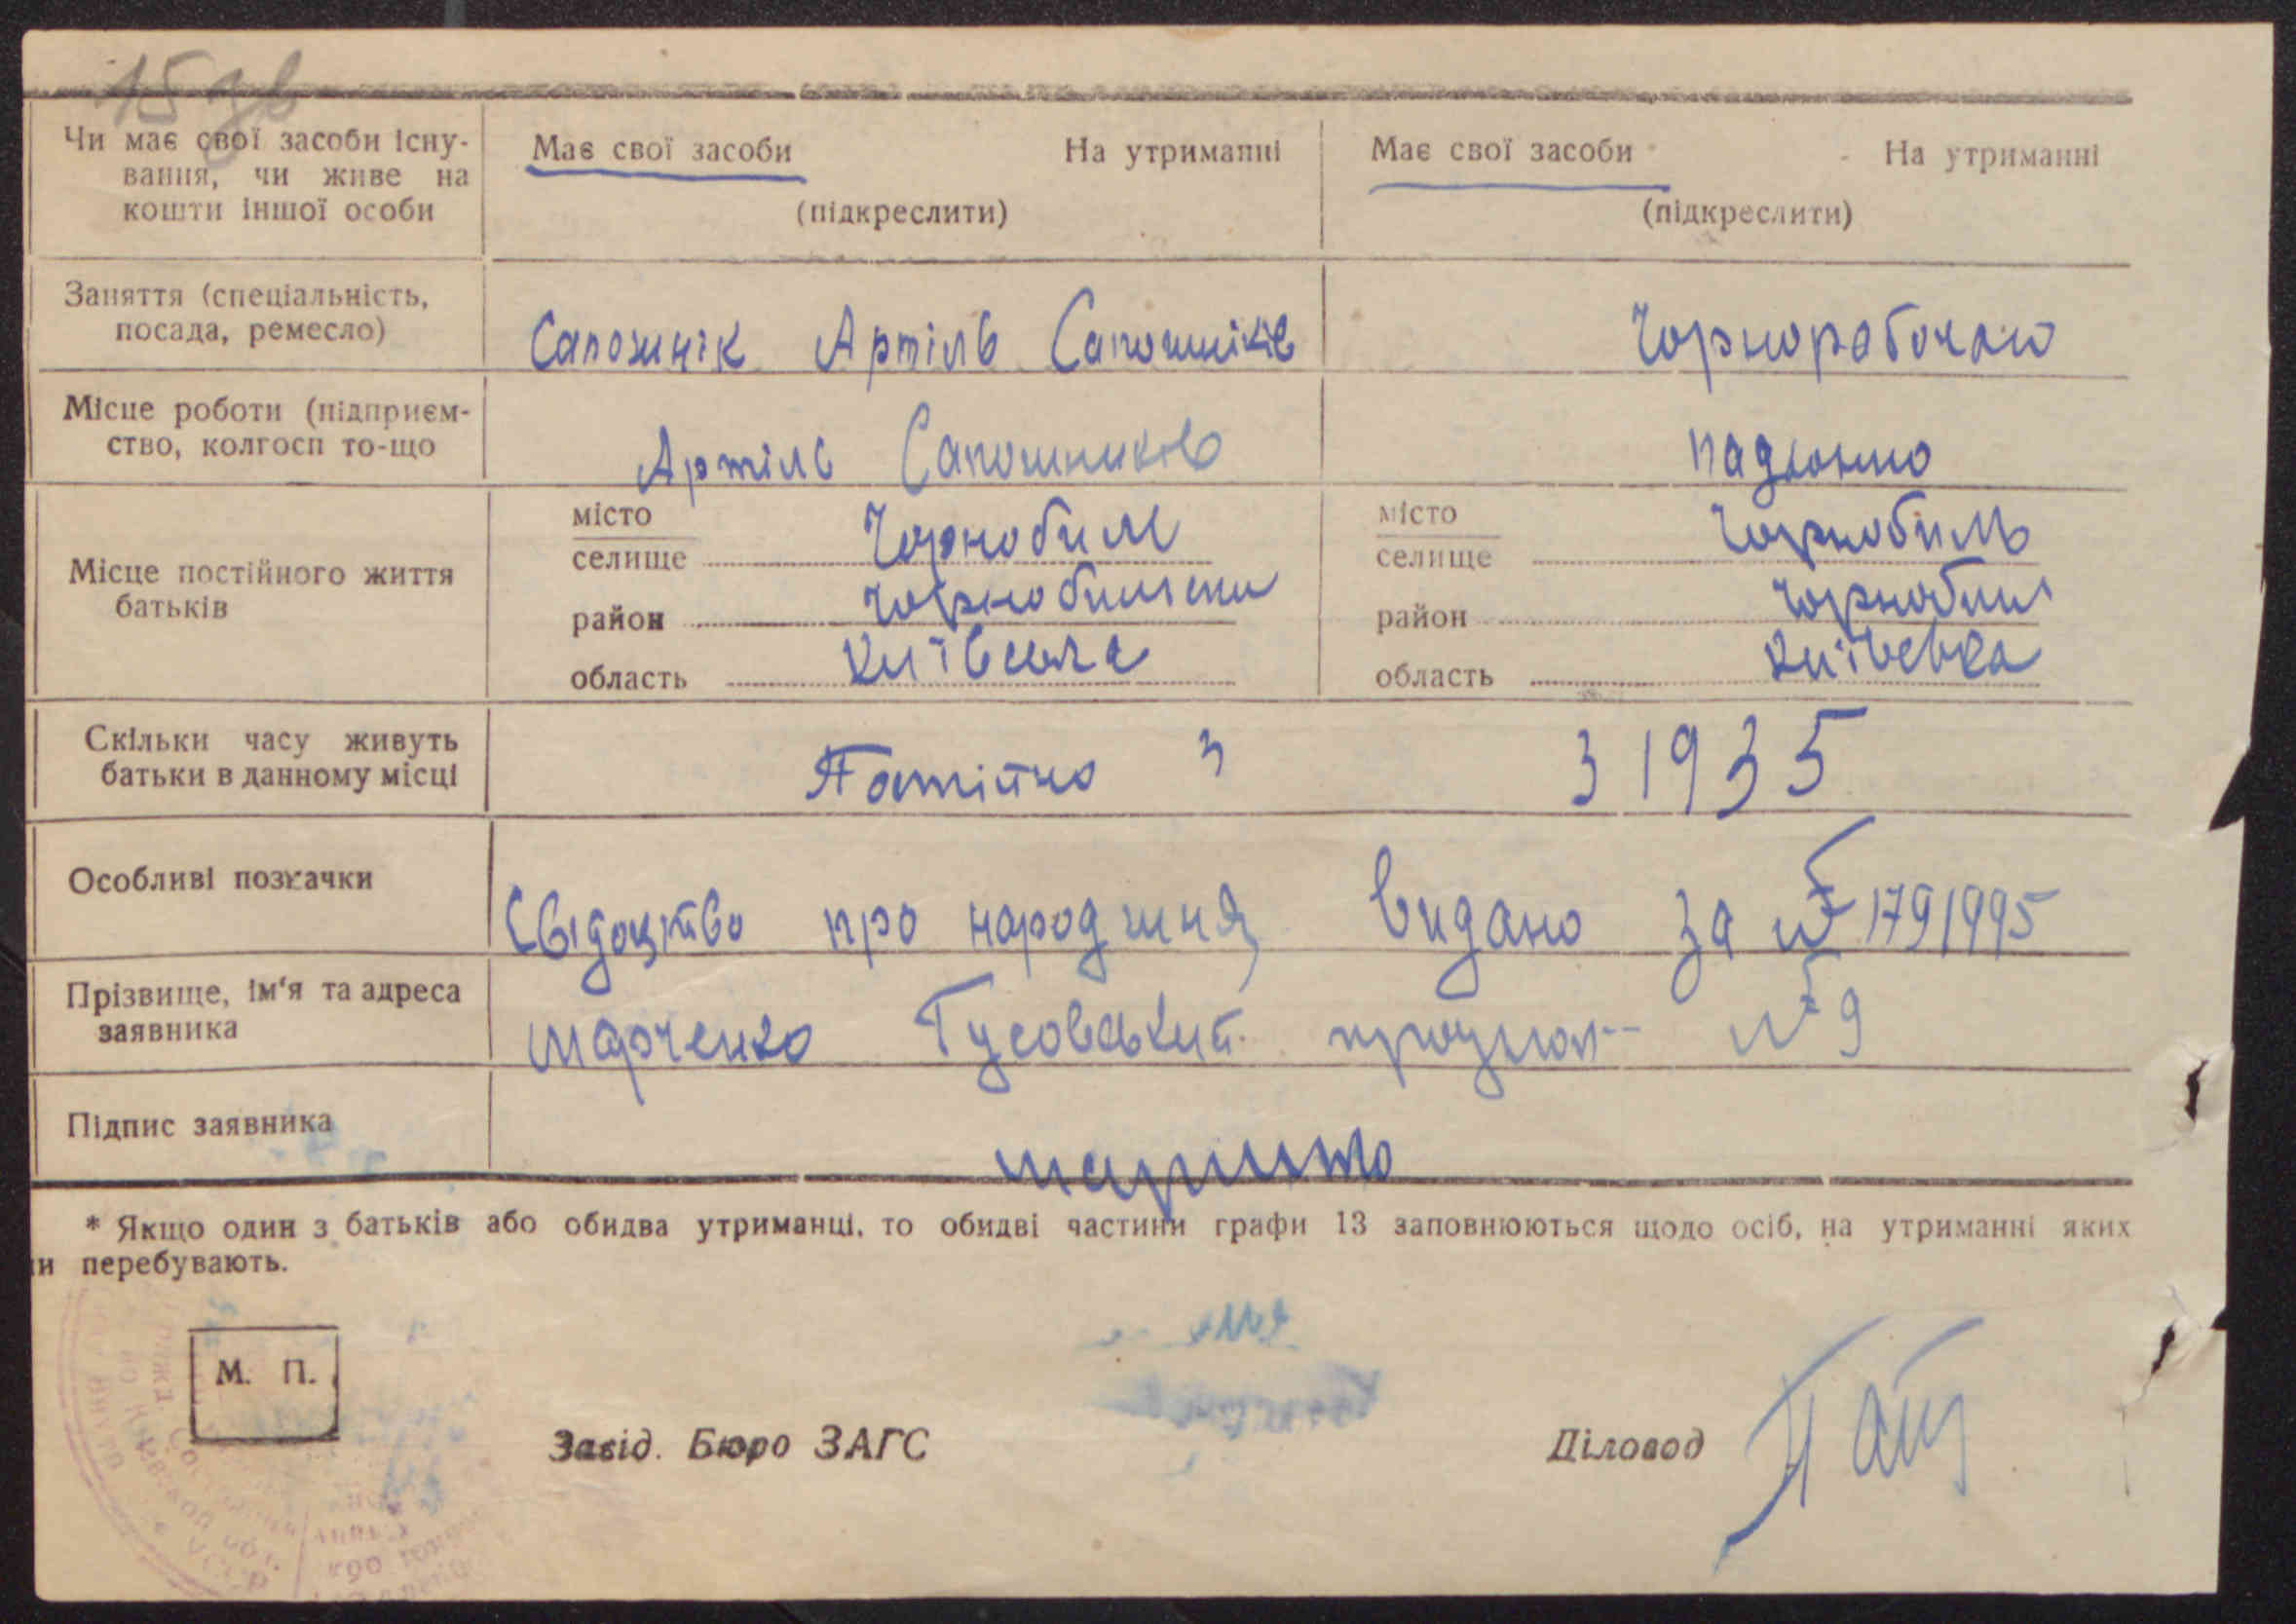 15 зв
Чи має свої засоби існу- Має свої засоби На утриманні Має свої засоби На утриманні
вання, чи живе на
кошти іншої особи (підкреслити) (підкреслити)
Заняття (спеціальність,
посада, ремесло) Сапожнік Артіль Сапошніків Чорнорабочаю
Місце роботи (підприєм-
ство, колгосп то-що Артіль Сапошників
місто Чорнобиль місто Чорнобиль
селище селище
Місце постійного життя
батьків
район Чорнобильски район Чорнобил
область Київська область Київська
Скільки часу живуть
батьки в данному місці Постійно з з 1935
Особливі позначки
Свідоцтво про народженя видано за № 1791995
Прізвище, ім'я та адреса
заявника Марченко Гусовський № 9
Підпис заявника
* Якщо один з батьків або обидва утриманці, то обидві частини графи 13 заповнюються щодо осіб, на утриманні яких
и перебувають.
М. П.
Завід. Бюро ЗАГС Діловод